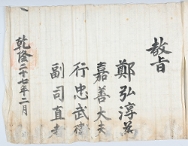 敎旨
鄭弘淳爲
嘉善大夫
行忠武衛
副司直者
乾隆二十七年二月